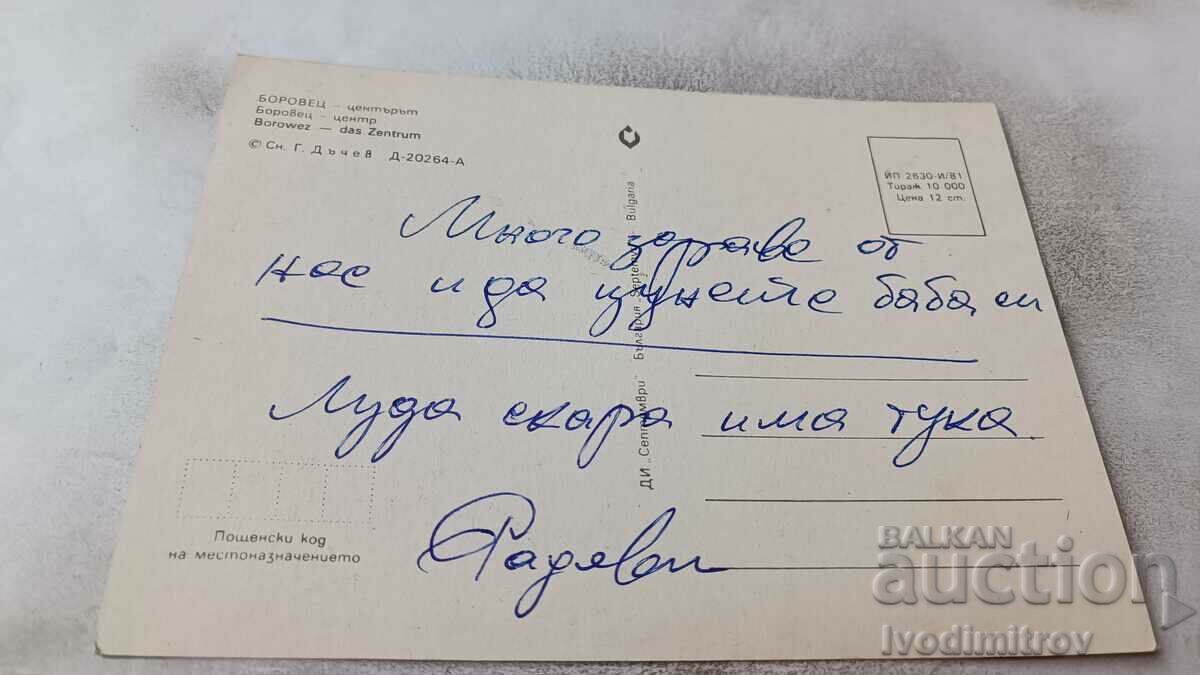 БОРОВЕЦ – центърът
Боровец – центр
Borowez — das Zentrum
© Сн. Г. Дъчев Д-20264-А
ЙП 2630-И/81
Тираж 10 000
Цена 12 ст.
Много здраве от
нас и да цунете баба си
Луда скара има тука
Радяви
ДИ „Септември" България „Septemvri" Bulgaria
Пощенски код
на местоназначението
BALKAN
auction
Ivodimitrov